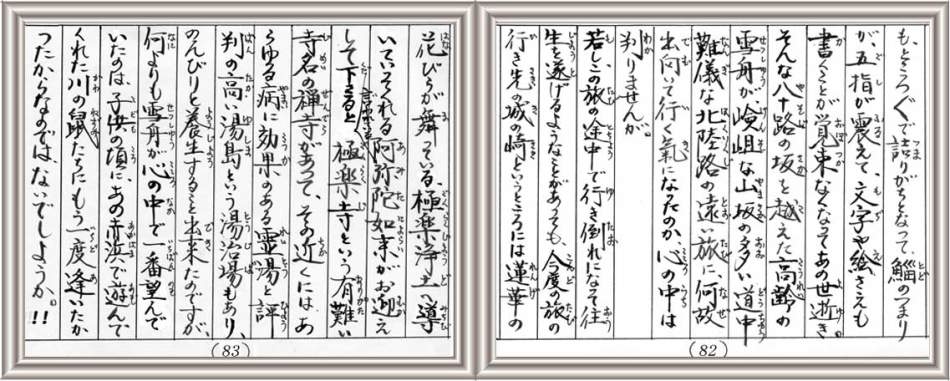 も、ところ〲で詰りがちとなって、鯔のつまり
が、五指が震えて、文字や絵さえも
書くことが覚束なくなってあの世逝き
そんな八十路の坂を越えた高齢の
雪舟が嶮岨な山坂の多い道中
難儀な北陸路の遠い旅に、何故
出向いて行く氣になったのか、心の中は
判りませんが。
若しこの旅の途中で行き倒れになって往
生を遂げるようなことがあっても、今度の旅の
行き先、城の崎というところには蓮華の
(82)
花びらが舞っている、極楽浄土へ導
いていられる阿弥陀如来がお迎え
して下さると言われる極楽寺という有難い
寺名の禅寺があって、その近くには、あ
らゆる病に効果のある霊湯と評
判の高い湯島という湯治場もあり、
のんびりと養生すること出来たのですが、
何よりも雪舟が心の中で一番望んで
いたのは、子供の頃に、あの赤浜で遊んで
くれた川の鼠たちにもう一度逢いたか
ったからなのでは、ないでしょうか。!!
(83)